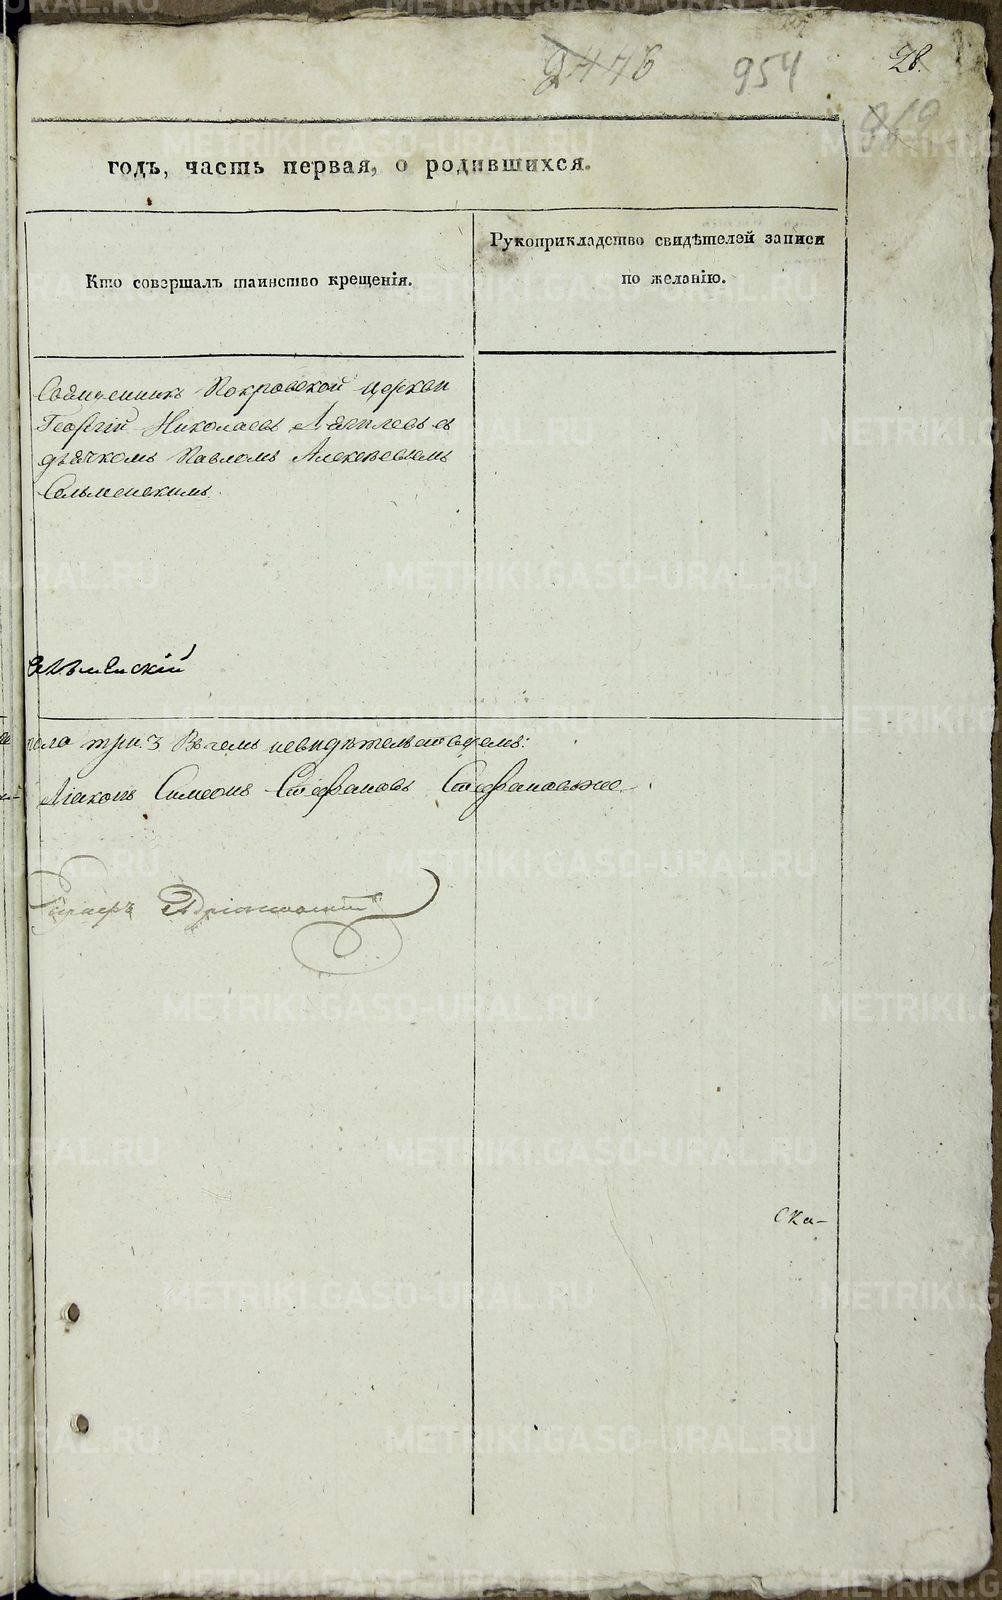 2476
954
28.
годъ, часть первая, о родившихся.
Кто совершалъ таинство крещенія.
Рукоприкладство свидѣтелей записи
по желанію.
Священникъ Покровской церкви
Георгій Николаевъ съ
дьячкомъ Павломъ Алексѣевымъ
Сельменскимъ.
пола три. 3 Въ чемъ и свидѣтельствуемъ:
Діаконъ Симеонъ Стефановъ
Ска-
METRIKI.GASO-URAL.RU